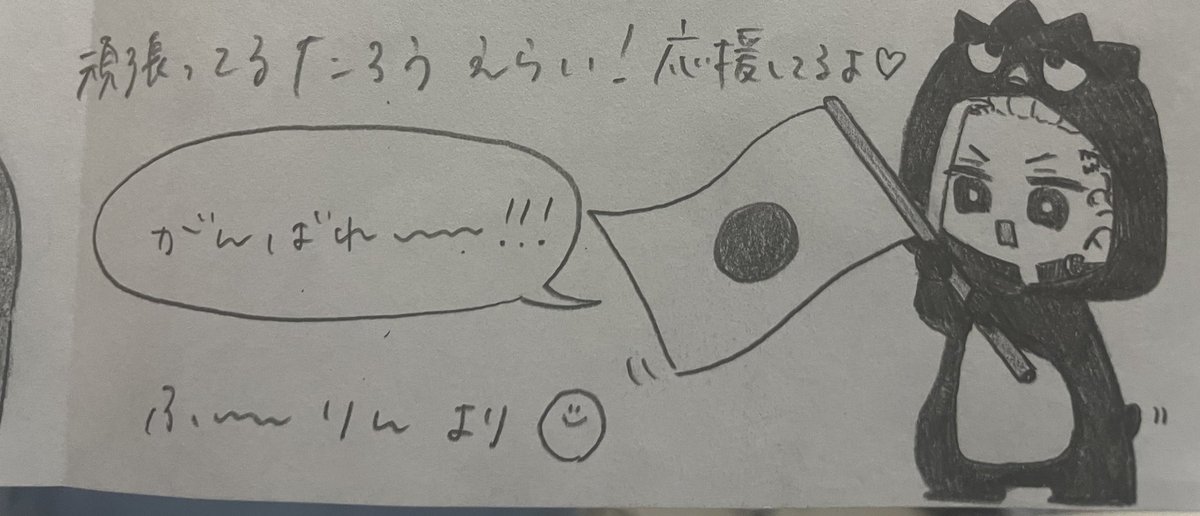 頑張ってるたろうえらい！応援してるよ♡
がんばれ〜〜!!!
ふ〜〜りんより